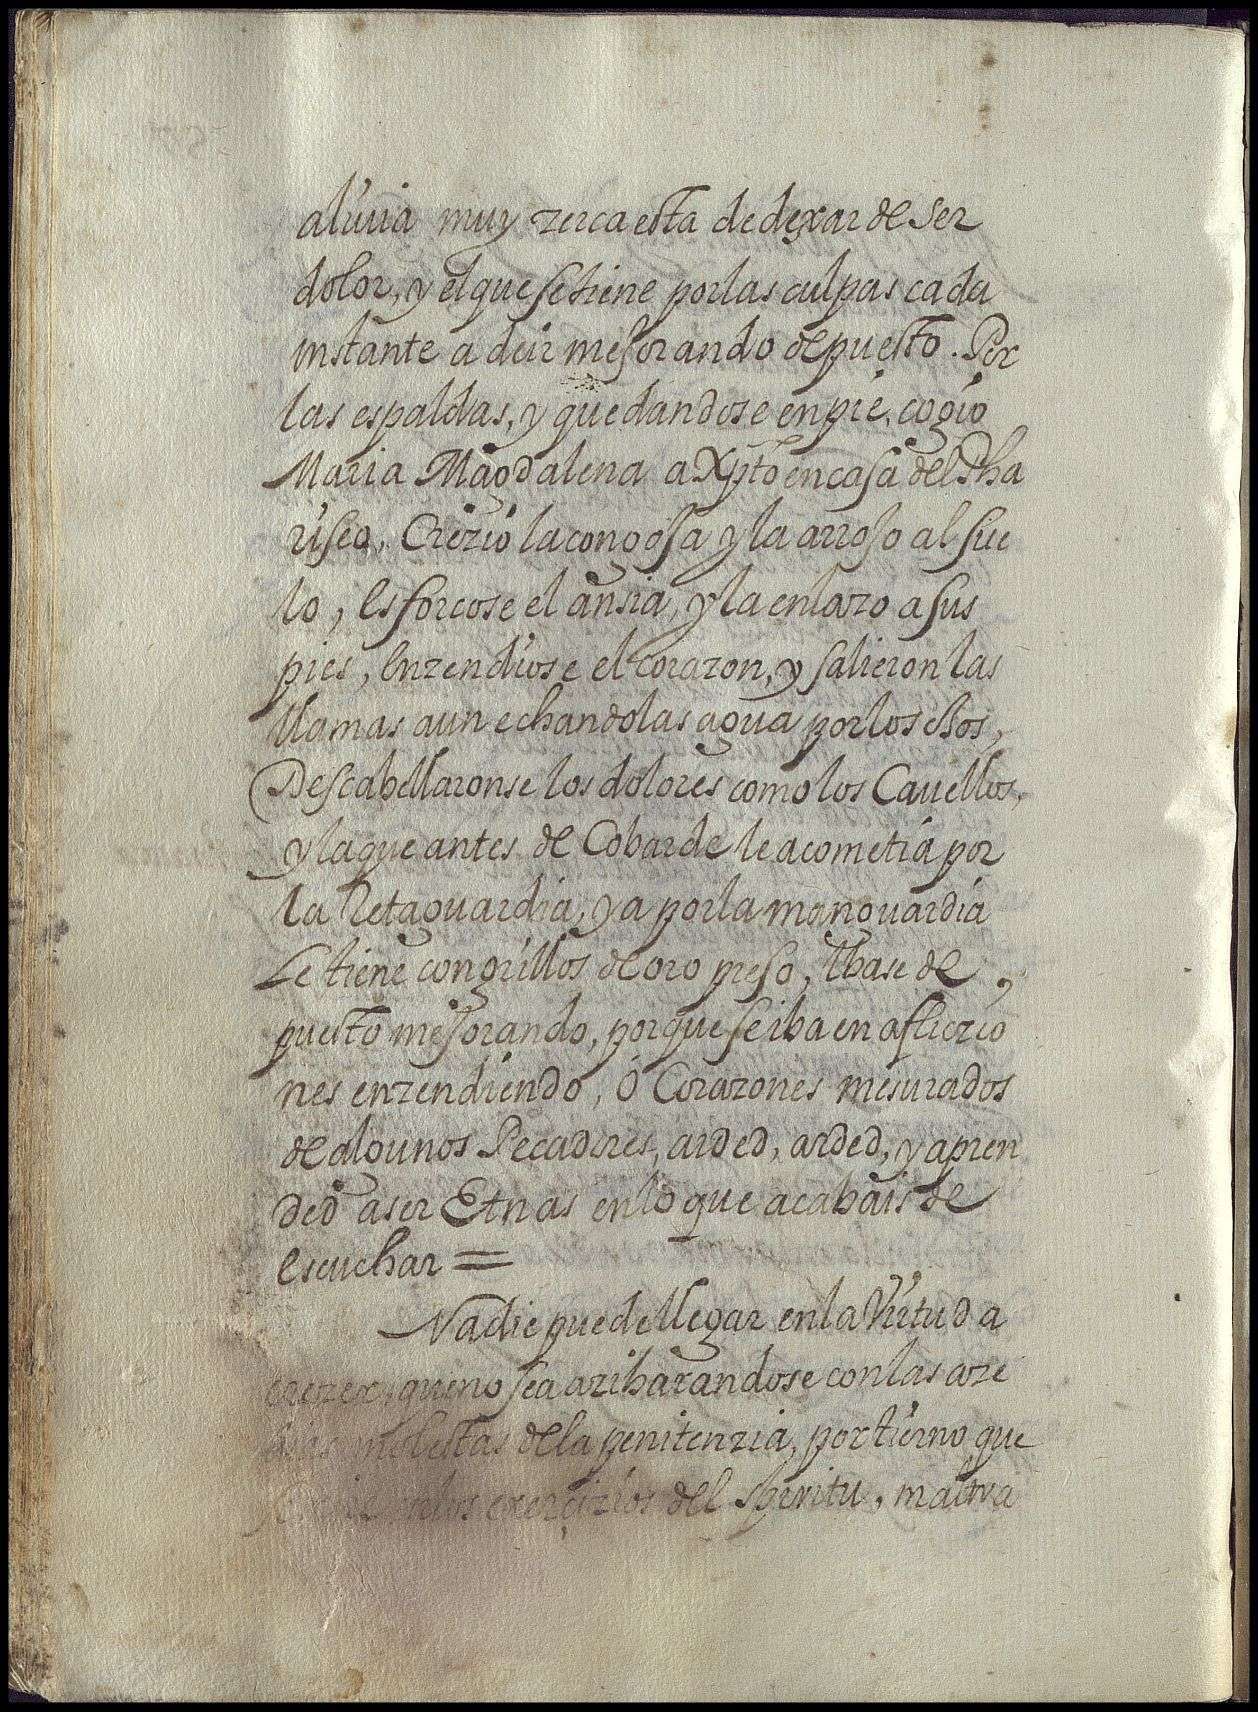 aliuia muy zerca esta de dexar de ser
dolor, y el que se tiene por las culpas cada
instante a de ir mejorando de puesto. Por
las espaldas, y quedandose en pie, cogio
Maria Magdalena a Xpto en casa del Pha
riseo, Crezio la congoja y la arrojo al sue
lo, esforcose el ansia, y la enlazo a sus
pies, enzendiose el corazon, y salieron las
llamas aun echandolas agua por los ojos,
Descabellaronse los dolores como los Cauellos,
y la que antes de Cobarde le acometia por
la Retaguardia, ya por la manguardia
Le tiene con grillos de oro preso, Ibase de
puesto mejorando, porque se iba en afliczio
nes enzendiendo, O Corazones mesurados
de algunos Pecadores, arded, arded, y apren
ded a ser Etnas en lo que acabais de
escuchar =
Nadie puede llegar en la Virtud a
crezer, que no sea azibarandose con las aze
molestas de la penitenzia, por tierno que
los exerçizios del spiritu, maltra